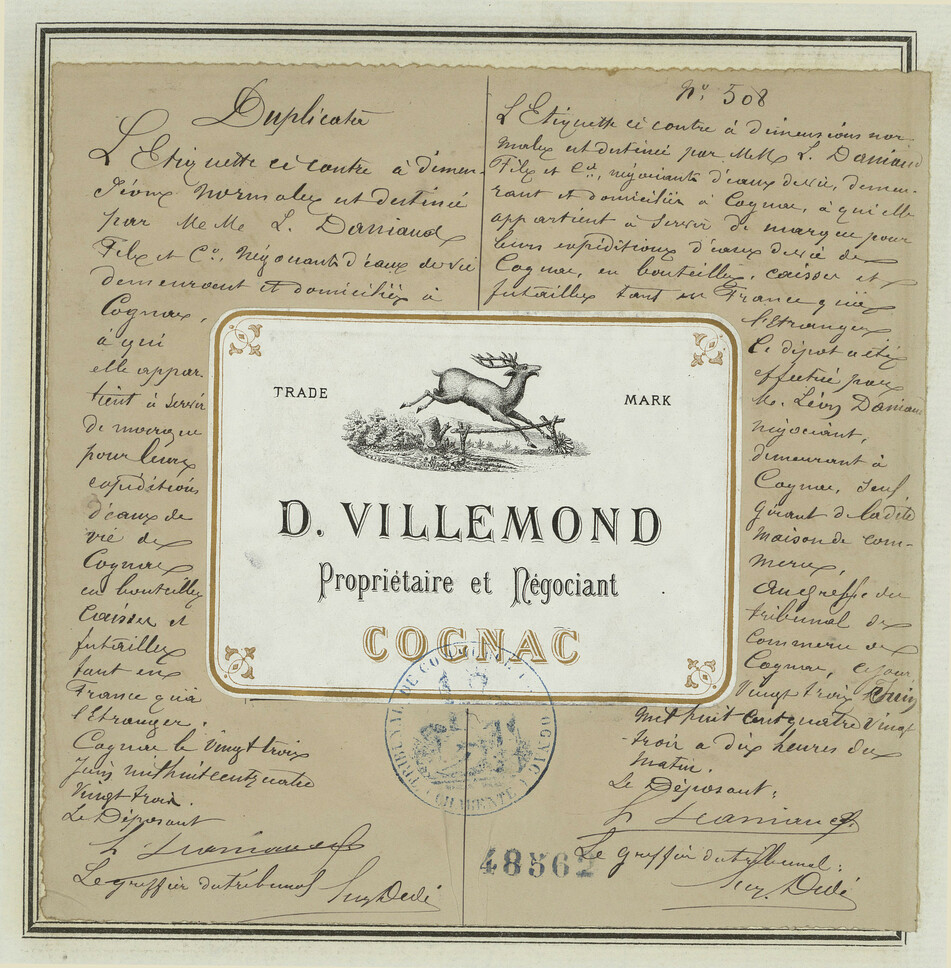 Duplicata
L'Etiquette ci contre à dimen-
sions normales est destinée
par MeMs L. Daniaud
Filx et Cie, négociants d'eaux de vie
demeurant et domiciliés à
Cognac,
à qui
elle appar-
tient à servir
de marque
pour leurs
expéditions
d'eaux de
vie de
Cognac
en bouteilles
Caisses et
futailles
tant en
France qu'à
l'Etranger.
Cognac le vingt trois
Juin mil huit cent quatre
Vingt trois.
Le Déposant
L. Daniaud
Le greffier du tribunal
No. 508
L'Etiquette ci contre à dimensions nor-
males est destinée par MeMs L. Daniaud
Filx et Cie, négociants d'eaux de vie, demeu-
rant et domiciliés à Cognac, à qui elle
appartient à servir de marque pour
leurs expéditions d'eaux de vie de
Cognac, en bouteilles, caisses et
futailles tant en France qu'à
l'Etranger
Le dépot a été
effectué par
M. Lévy Daniaud
négociant,
demeurant à
Cognac, seul
gérant de la dite
maison de com-
merce,
au greffe du
tribunal de
Commerce de
Cognac, ce jour
Vingt trois Juin
mil huit cent quatre vingt
trois à dix heures du
matin.
Le Déposant:
L. Daniaud
Le greffier du tribunal:
TRADE MARK
D. VILLEMOND
Propriétaire et Négociant
COGNAC
TRIBUNAL DE COMMERCE COGNAC
CHARENTE
48562